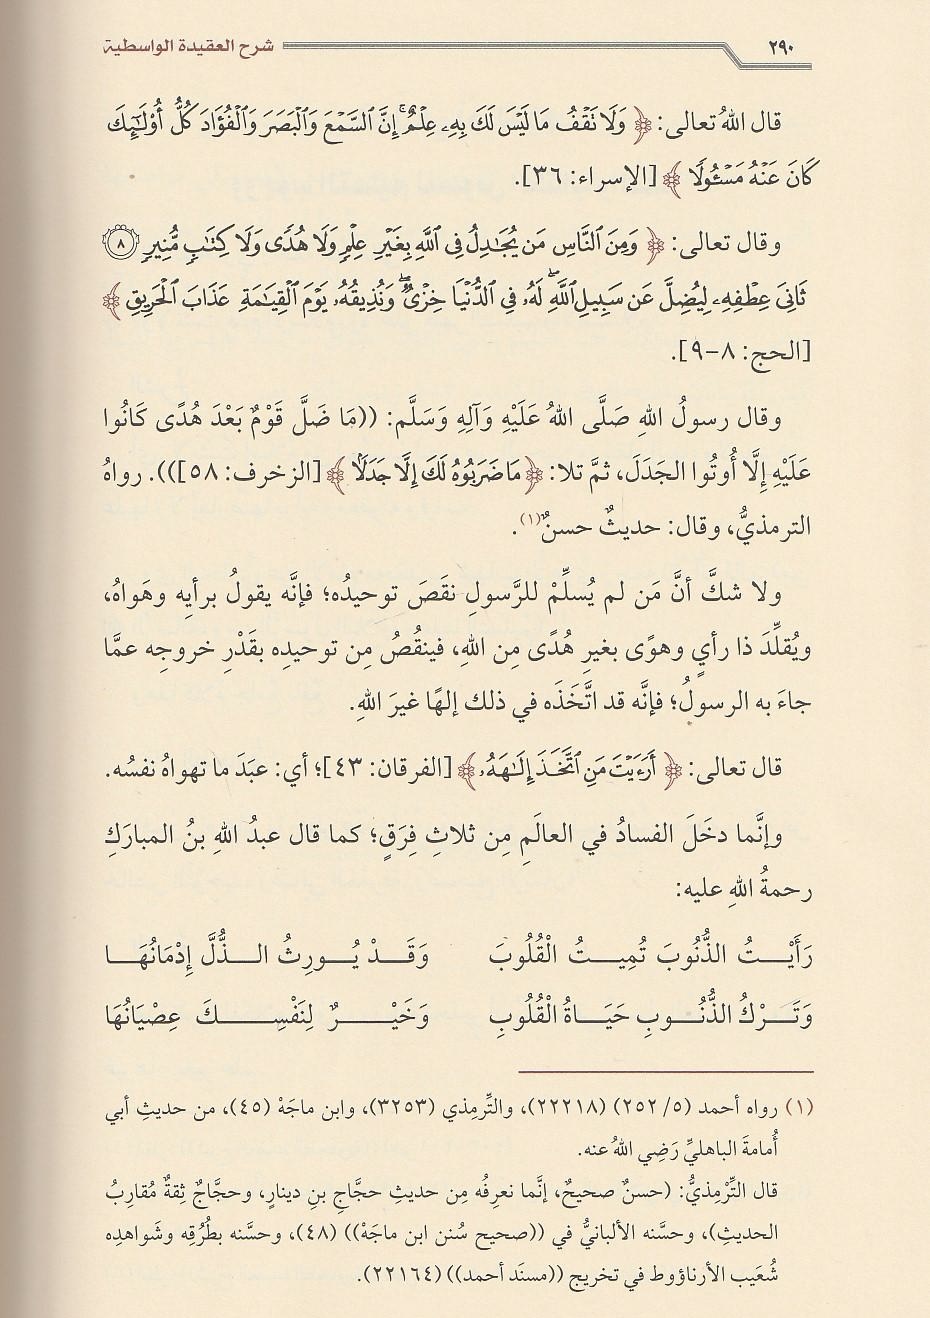 ٢٩٠ شرح العقيدة الواسطية
قال اللهُ تعالى: ﴿وَلَا تَقْفُ مَا لَيْسَ لَكَ بِهِۦ عِلْمٌ ۚ إِنَّ ٱلسَّمْعَ وَٱلْبَصَرَ وَٱلْفُؤَادَ كُلُّ أُو۟لَـٰٓئِكَ
كَانَ عَنْهُ مَسْـُٔولًا﴾ [الإسراء: ٣٦].
وقال تعالى: ﴿وَمِنَ ٱلنَّاسِ مَن يُجَـٰدِلُ فِى ٱللَّهِ بِغَيْرِ عِلْمٍ وَلَا هُدًى وَلَا كِتَـٰبٍ مُّنِيرٍ ٨
ثَانِىَ عِطْفِهِۦ لِيُضِلَّ عَن سَبِيلِ ٱللَّهِ ۖ لَهُۥ فِى ٱلدُّنْيَا خِزْىٌ ۖ وَنُذِيقُهُۥ يَوْمَ ٱلْقِيَـٰمَةِ عَذَابَ ٱلْحَرِيقِ﴾
[الحج: ٨-٩].
وقال رسولُ اللهِ صَلَّى اللهُ عَلَيْهِ وَآلِهِ وَسَلَّم: ((مَا ضَلَّ قَوْمٌ بَعْدَ هُدًى كَانُوا
عَلَيْهِ إِلَّا أُوتُوا الجَدَلَ، ثمَّ تلا: ﴿مَا ضَرَبُوهُ لَكَ إِلَّا جَدَلًۢا﴾ [الزخرف: ٥٨])). رواهُ
الترمذيُّ، وقال: حديثٌ حسنٌ(١).
ولا شكَّ أنَّ مَن لم يُسلِّمْ للرَّسولِ نقَصَ توحيدُه؛ فإنَّه يقولُ برأيِه وهَواهُ،
ويُقلِّدَ ذا رأيٍ وهوًى بغيرِ هُدًى مِن اللهِ، فينقُصُ مِن توحيدِه بقَدْرِ خروجِه عمَّا
جاءَ به الرسولُ؛ فإنَّه قد اتَّخَذَه في ذلك إلهًا غيرَ اللهِ.
قال تعالى: ﴿أَرَءَيْتَ مَنِ ٱتَّخَذَ إِلَـٰهَهُۥ﴾ [الفرقان: ٤٣]؛ أي: عبَدَ ما تهواهُ نفسُه.
وإنَّما دخَلَ الفسادُ في العالَمِ مِن ثلاثِ فِرَقٍ؛ كما قال عبدُ اللهِ بنُ المبارَكِ
رحمةُ اللهِ عليه:
رَأَيْتُ الذُّنُوبَ تُمِيتُ الْقُلُوبَ وَقَدْ يُورِثُ الذُّلَّ إِدْمَانُهَا
وَتَرْكُ الذُّنُوبِ حَيَاةُ الْقُلُوبِ وَخَيْرٌ لِنَفْسِكَ عِصْيَانُهَا
(١) رواه أحمد (٥/ ٢٥٢) (٢٢٢١٨)، والتِّرمِذي (٣٢٥٣)، وابن ماجَهْ (٤٥)، من حديثِ أبي
أُمامةَ الباهليِّ رَضِي اللهُ عنه.
قال التِّرْمِذيُّ: (حسنٌ صحيحٌ، إنَّما نعرِفُه مِن حديثِ حجَّاجِ بنِ دينارٍ، وحجَّاجٌ ثِقةٌ مُقارِبُ
الحديثِ)، وحسَّنه الألبانيُّ في ((صحيح سُنن ابن ماجَهْ)) (٤٨)، وحسَّنه بطُرُقِه وشَواهدِه
شُعَيب الأرناؤوط في تخريج ((مسنَد أحمد)) (٢٢١٦٤).